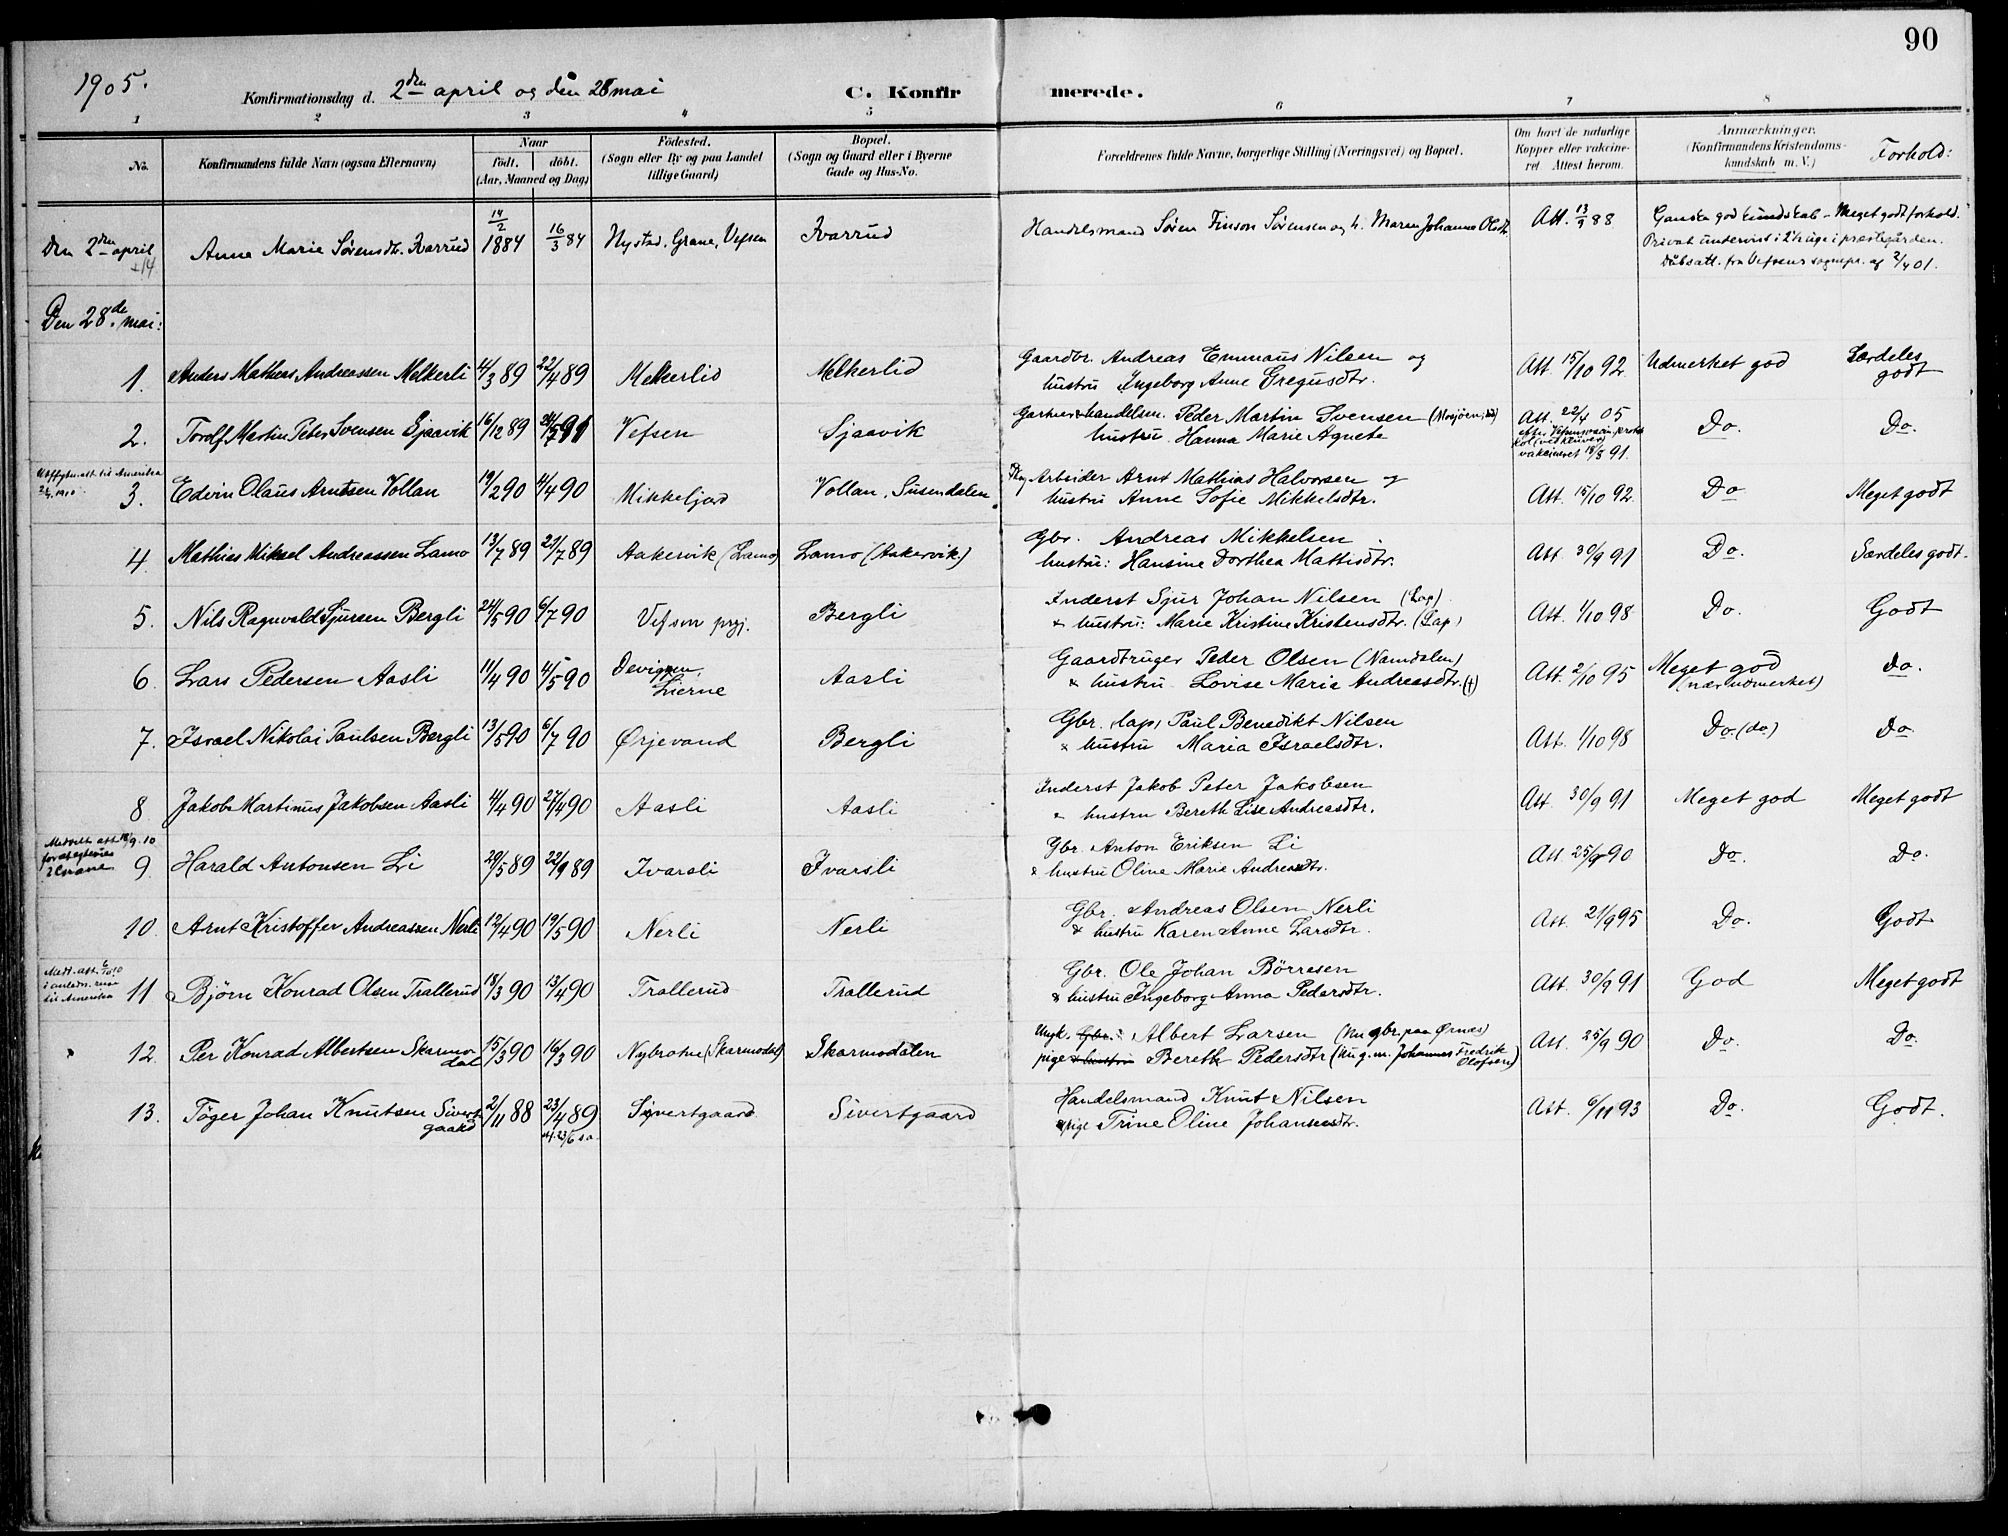 90
1905. Konfirmationsdag d. 2den april og den 28 mai C. Konfirmerede.
1 2 3 4 5 6 7 8
No. Konfirmandens fulde Navn (ogsaa Efternavn) Naar født. døbt. (Aar, Maaned og Dag) Fødested. (Sogn eller By og paa Landet tillige Gaard) Bopæl. (Sogn og Gaard eller i Byerne Gade og Hus-No. Forældrenes fulde Navne, borgerlige Stilling (Næringsvei) og Bopæl. Om havt de naturlige Kopper eller vaccineret. Attest herom. Anmærkninger. (Konfirmandens Kristendomskundskab m. V.) Forhold:
Den 2den april Anna Marie Sørensdtr. Ivarrud 14/2 1884 16/3 84 Nystad, Grane, Vefsen Ivarrud Handelsmand Søren Finson Sørensen og h. Maren Johanne Olsdtr. Att. 13/9 88 Ganske god kundskab – Meget godt forhold.
Privat undervist i 2 uge i præstegården.
Dåbsatt. fra Vefsens sognepr. af 2/4 01.
Den 28de mai:
1. Anders Mathias Andreassen Melkerli 11/3 89 22/4 89 Melkerlid Melkerlid Gaardbr. Andreas Emmaus Nilsen og Att. 15/10 92 Udmerket god Særdeles godt
hustru Ingeborg Anne Gregusdtr.
2. Torolf Martin Peter Svensen Sjaavik 16/12 89 24/5 91 Vefsen Sjaavik Gartner & handelsm. Peder Martin Svensen (Mosjøen) Att. 22/4 05 Do. Do.
hustru Hanna Marie Agnete
vakcineret 18/8 91.
Udflytn.att. til Amerika
3. Edvin Olaus Arntsen Vollan 19/2 90 11/4 90 Mikkeljord Vollan, Susendalen Arbeider Arnt Mathias Halvorsen og Att. 15/10 92. Do Meget godt
hustru Anne Sofie Mikkelsdtr.
4. Mathias Mikael Andreassen Lamo 13/7 89 21/7 89 Aakervik (Lamo) Lamo (Aakervik) Gbr. Andreas Mikkelsen Att. 30/9 91 Do. Særdeles godt.
hustru: Hansine Dorthea Mattisdtr.
5. Nils Ragnvald Sjursen Bergli 24/5 90 6/7 90 Vefsen prgj. Bergli Inderst Sjur Johan Nilsen (Lap) Att. 1/10 98 Do. Godt
& hustru: Marie Kristine Kristensdtr. (Lap)
6. Lars Pedersen Aasli 11/4 90 4/5 90 Devigen, Lierne Aasli Gaardbruger Peder Olsen (Namdalen) Att. 2/10 95 Meget god (nær udmerket) Do.
& hustru Lovise Maria Andreasdtr. (†)
7. Israel Nikolai Paulsen Bergli 13/5 90 6/7 90 Ørjevand Bergli Gbr. (Lap) Paul Benedikt Nilsen Att. 1/10 98 Do. (do) Do.
& hustru Maria Israelsdtr.
8 Jakob Martinus Jakobsen Aasli 11/4 90 27/4 90 Aasli Aasli Inderst Jakob Peter Jakobsen Att. 30/9 91 Meget god Meget godt
& hustru Bereth Lise Andreasdtr.
Meddelt att. 18/9.10 for at egtevies i Grane
9 Harald Antonsen Li 29/5 89 22/9 89 Ivarsli Ivarsli Gbr. Anton Eriksen Li Att. 25/9 90 Do. Do.
& hustru Oline Marie Andreasdtr.
10. Arnt Kristoffer Andreassen Nerli 12/4 90 19/5 90 Nerli Nerli Gbr. Andreas Olsen Nerli Att. 21/9 95 Do. Godt
& hustru Karen Anne Larsdtr.
Medd. att. 6/10 10 i anledn. reise til Amerika
11 Bjørn Konrad Olsen Trallerud 18/3 90 13/4 90 Trallerud Trallerud Gbr. Ole Johan Børresen Att. 30/9 91 God Meget godt
& hustru Ingeborg Anna Pedersdtr.
12. Per Konrad Albertsen Skarmodal 15/3 90 16/3 90 Nybrotne (Skarmodal) Skarmodalen Ungk. Gbr. Albert Larsen (Nu gbr. paa Ørnes) Att. 25/9 90 Do. Do.
pige & hustru Bereth Pedersdtr (Nu g.m. Johannes Fredrik Olofsen)
13. Tøger Johan Knutsen Sivertgaard 2/11 88 23/4 89 Sivertgaard Sivertgaard Handelsmand Knut Nilsen Att. 6/11 93 Do. Godt.
& pige Trine Oline Johansensdtr.